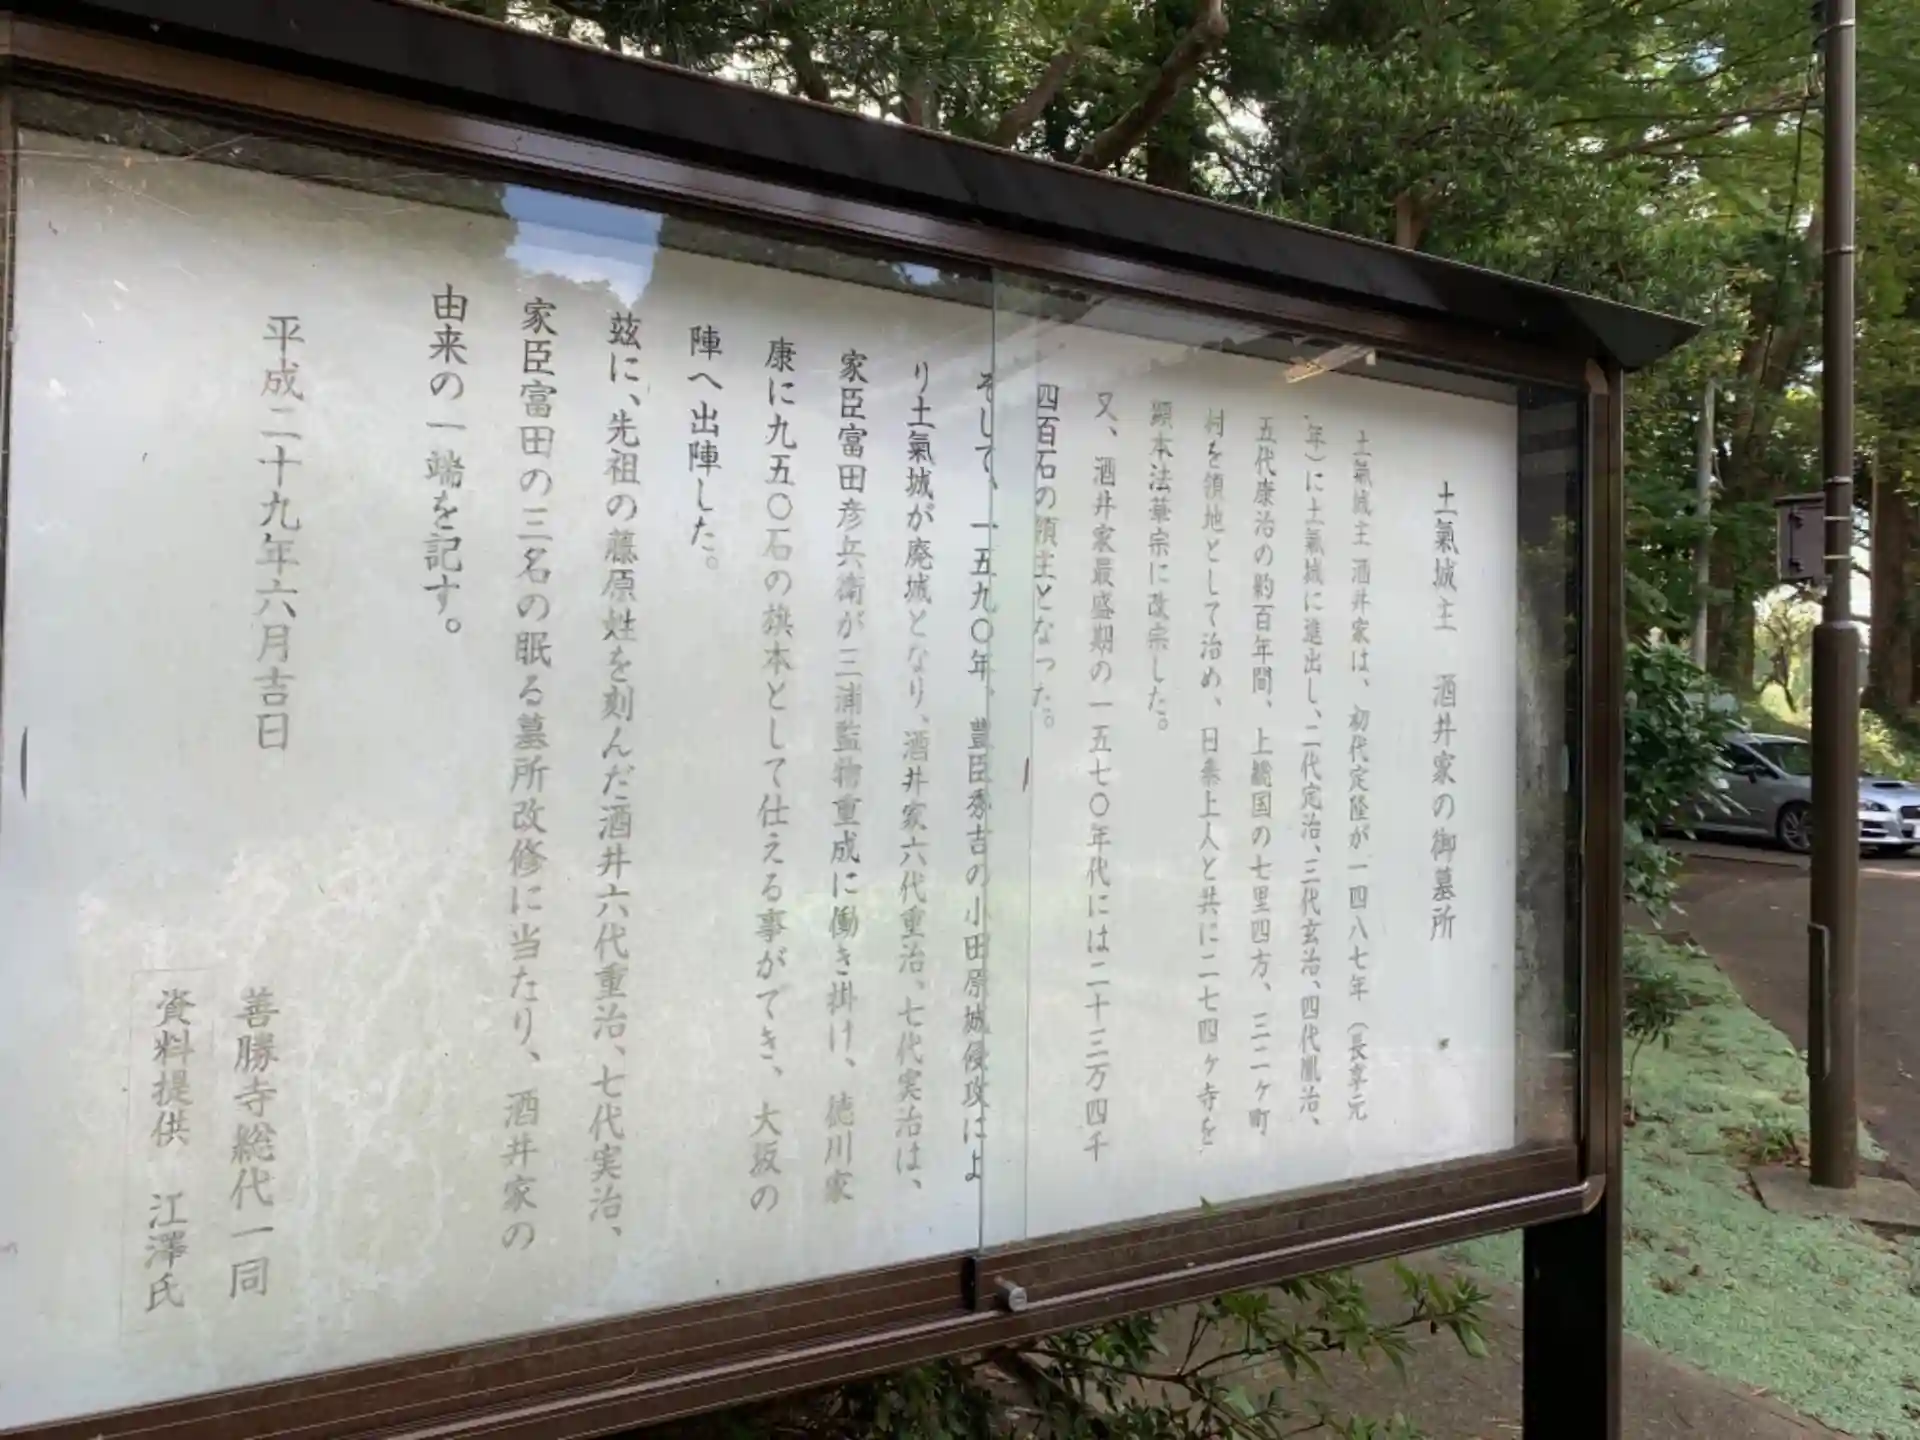 土氣城主　酒井家の御墓所
土氣城主酒井家は、初代定隆が一四八七年（長享元
年）に土氣城に進出し、二代定治、三代玄治、四代胤治、
五代康治の約百年間、上総国の七里四方、三二ヶ町
村を領地として治め、日泰上人と共に二七四ヶ寺を
顕本法華宗に改宗した。
又、酒井家最盛期の一五七〇年代には二十三万四千
四百石の領主となった。
そして、一五九〇年、豊臣秀吉の小田原城侵攻によ
り土氣城が廃城となり、酒井家六代重治、七代実治は、
家臣富田彦兵衛が三浦監物重成に働き掛け、徳川家
康に九五〇石の旗本として仕える事ができ、大坂の
陣へ出陣した。
茲に、先祖の藤原姓を刻んだ酒井六代重治、七代実治、
家臣富田の三名の眠る墓所改修に当たり、酒井家の
由来の一端を記す。
平成二十九年六月吉日
善勝寺総代一同
資料提供　江澤氏